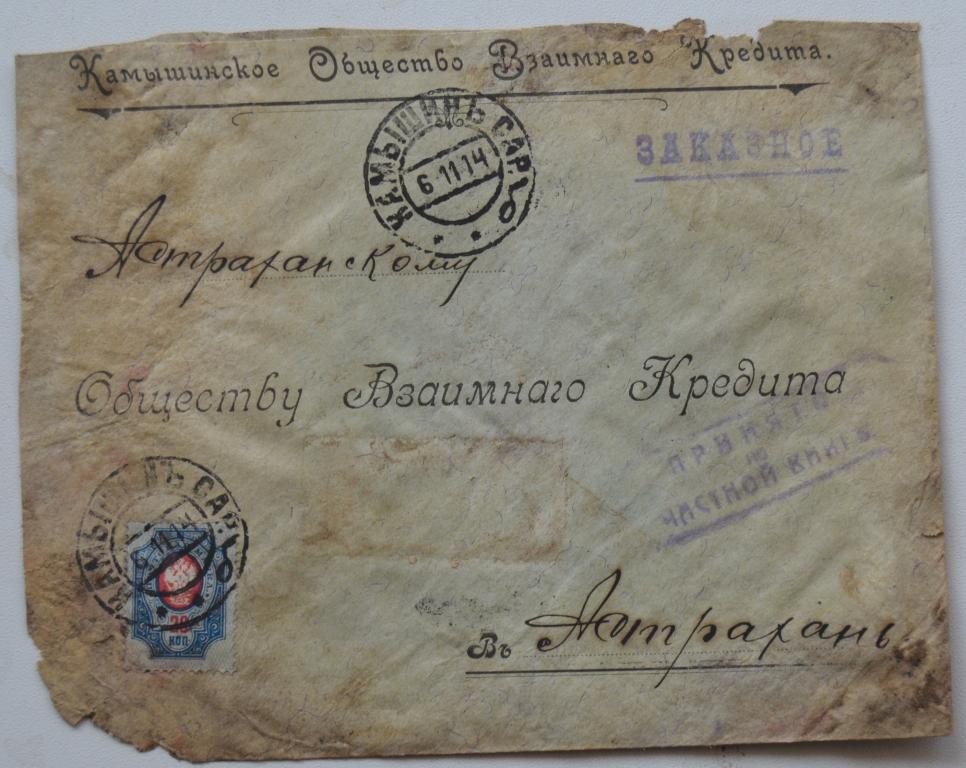 Камышинское Общество Взаимнаго Кредита.
КАМЫШИНЪ САР.
6 11 14
ЗАКАЗНОЕ
Астраханскому
Обществу Взаимнаго Кредита
ПРИНЯТО
ПО
ЧИСТНОЙ КНИГѢ
КАМЫШИНЪ САР.
6 11 14
20
КОП
Въ Астрахань